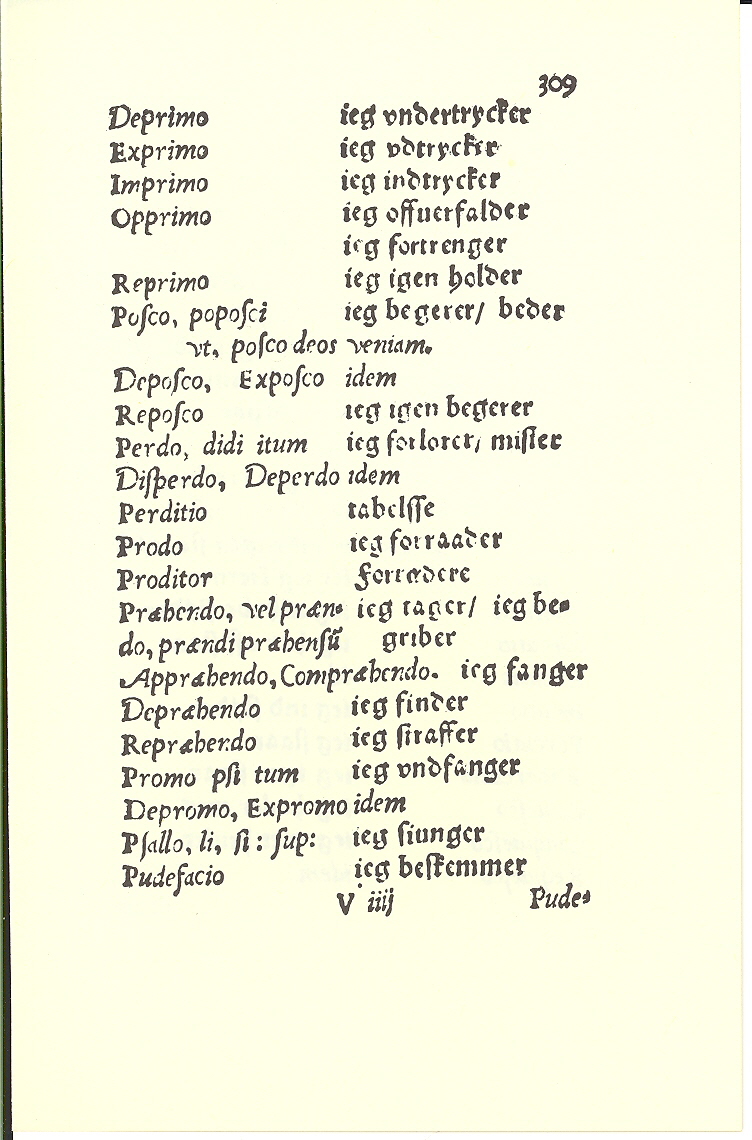 309
Deprimo ieg vndertrycker
Exprimo ieg vdtrycker
Imprimo ieg indtrycker
Opprimo ieg offuerfalder
ieg fortrenger
Reprimo ieg igen holder
Poſco, popoſci ieg begerer/ beder
vt, poſco deos veniam.
Depoſco, Expoſco idem
Repoſco ieg igen begerer
Perdo, didi itum ieg forlorer/ miſter
Diſperdo, Deperdo idem
Perditio tabelſſe
Prodo ieg forraader
Proditor Forrædere
Præhendo, vel præn- ieg tager/ ieg be-
do, prændi præhenſũ griber
Appræhendo, Compræhendo. ieg fanger
Depræhendo ieg finder
Repræhendo ieg ſtraffer
Promo pſi tum ieg vndfanger
Depromo, Expromo idem
Pſallo, li, ſi : ſup: ieg ſiunger
Pudefacio ieg beſkemmer
V iiij Pude-